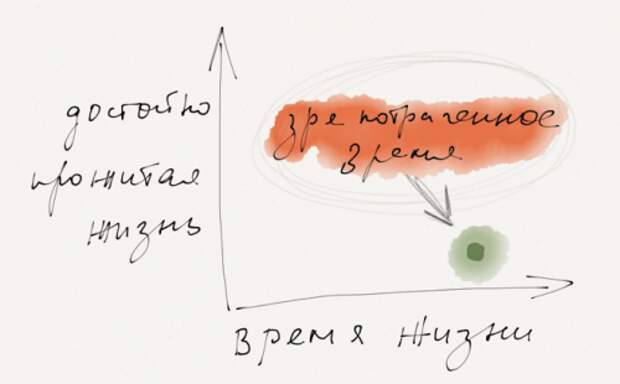 достойно
прожитая
жизнь
зре потраченное
время
время жизни